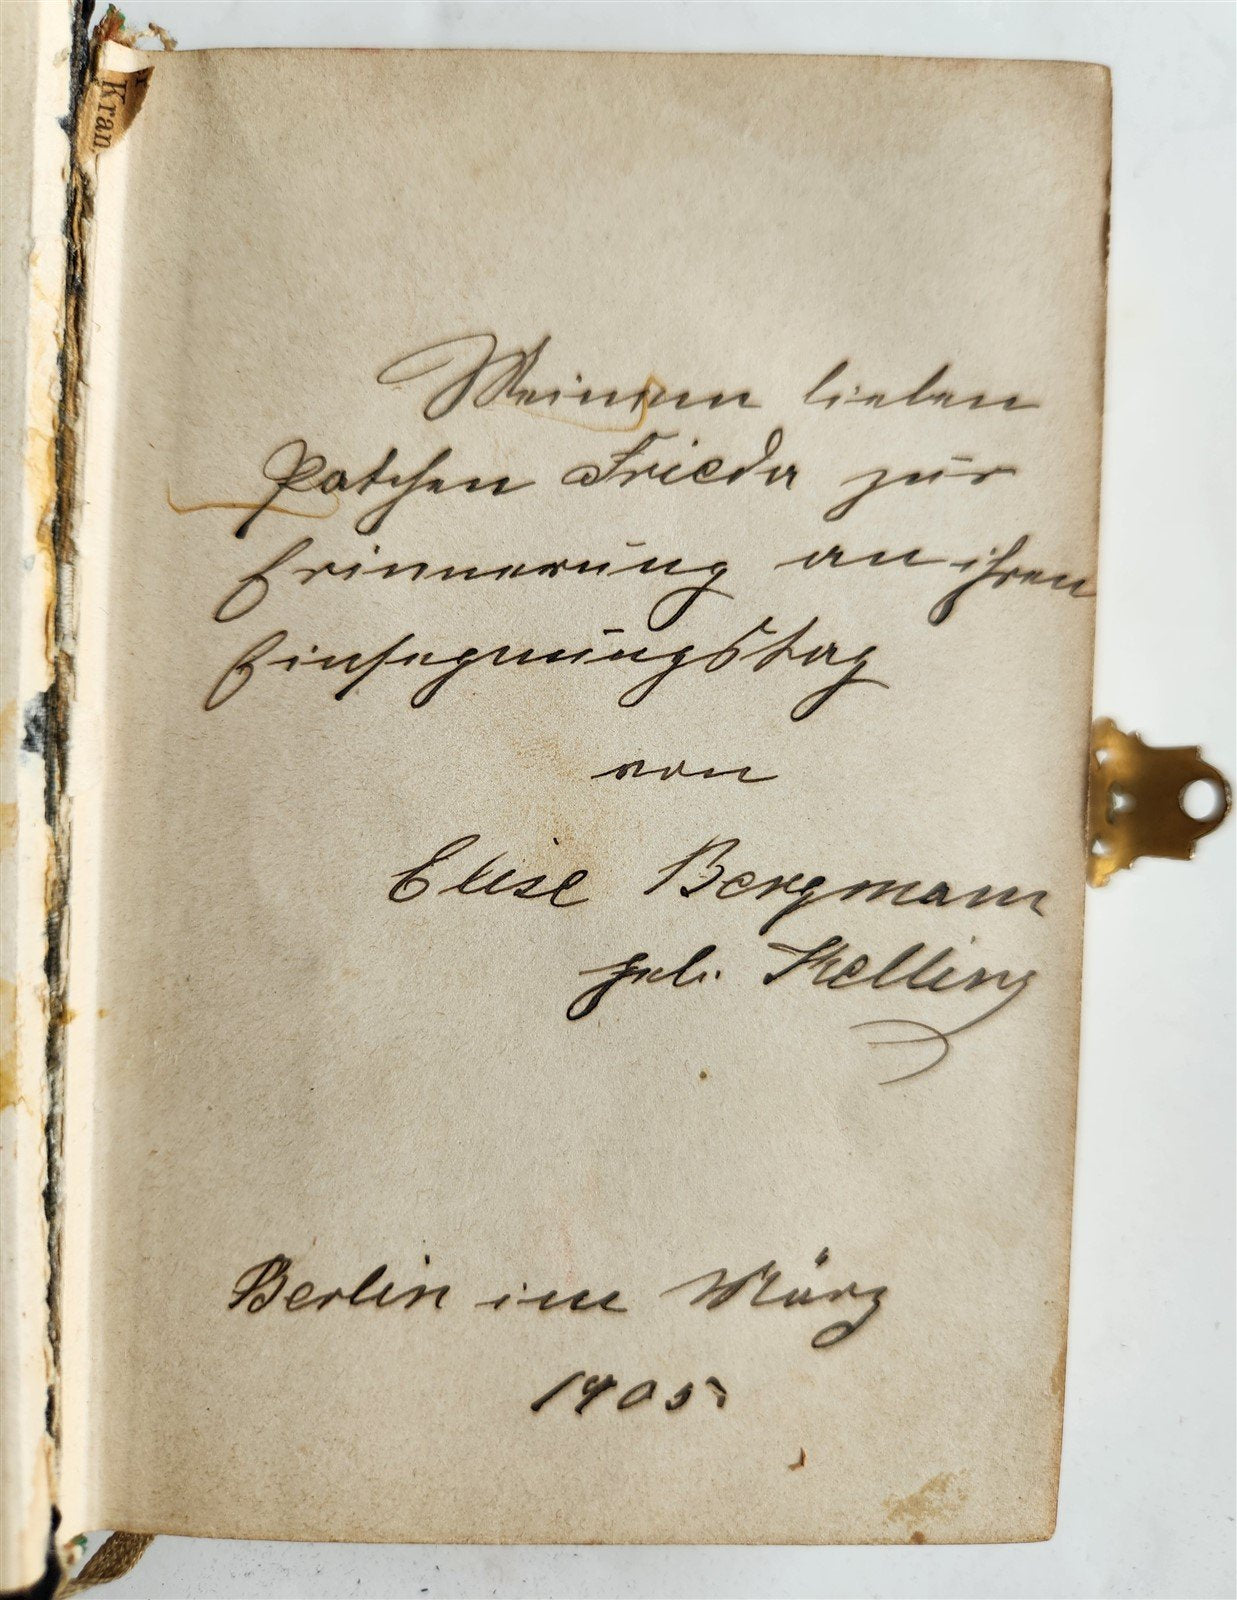 Kran
Meinem lieben
Patchen Frieda zur
Erinnerung an ihren
Einsegnungstag
von
Elise Bergmann
geb. Kelling
Berlin im März
1905